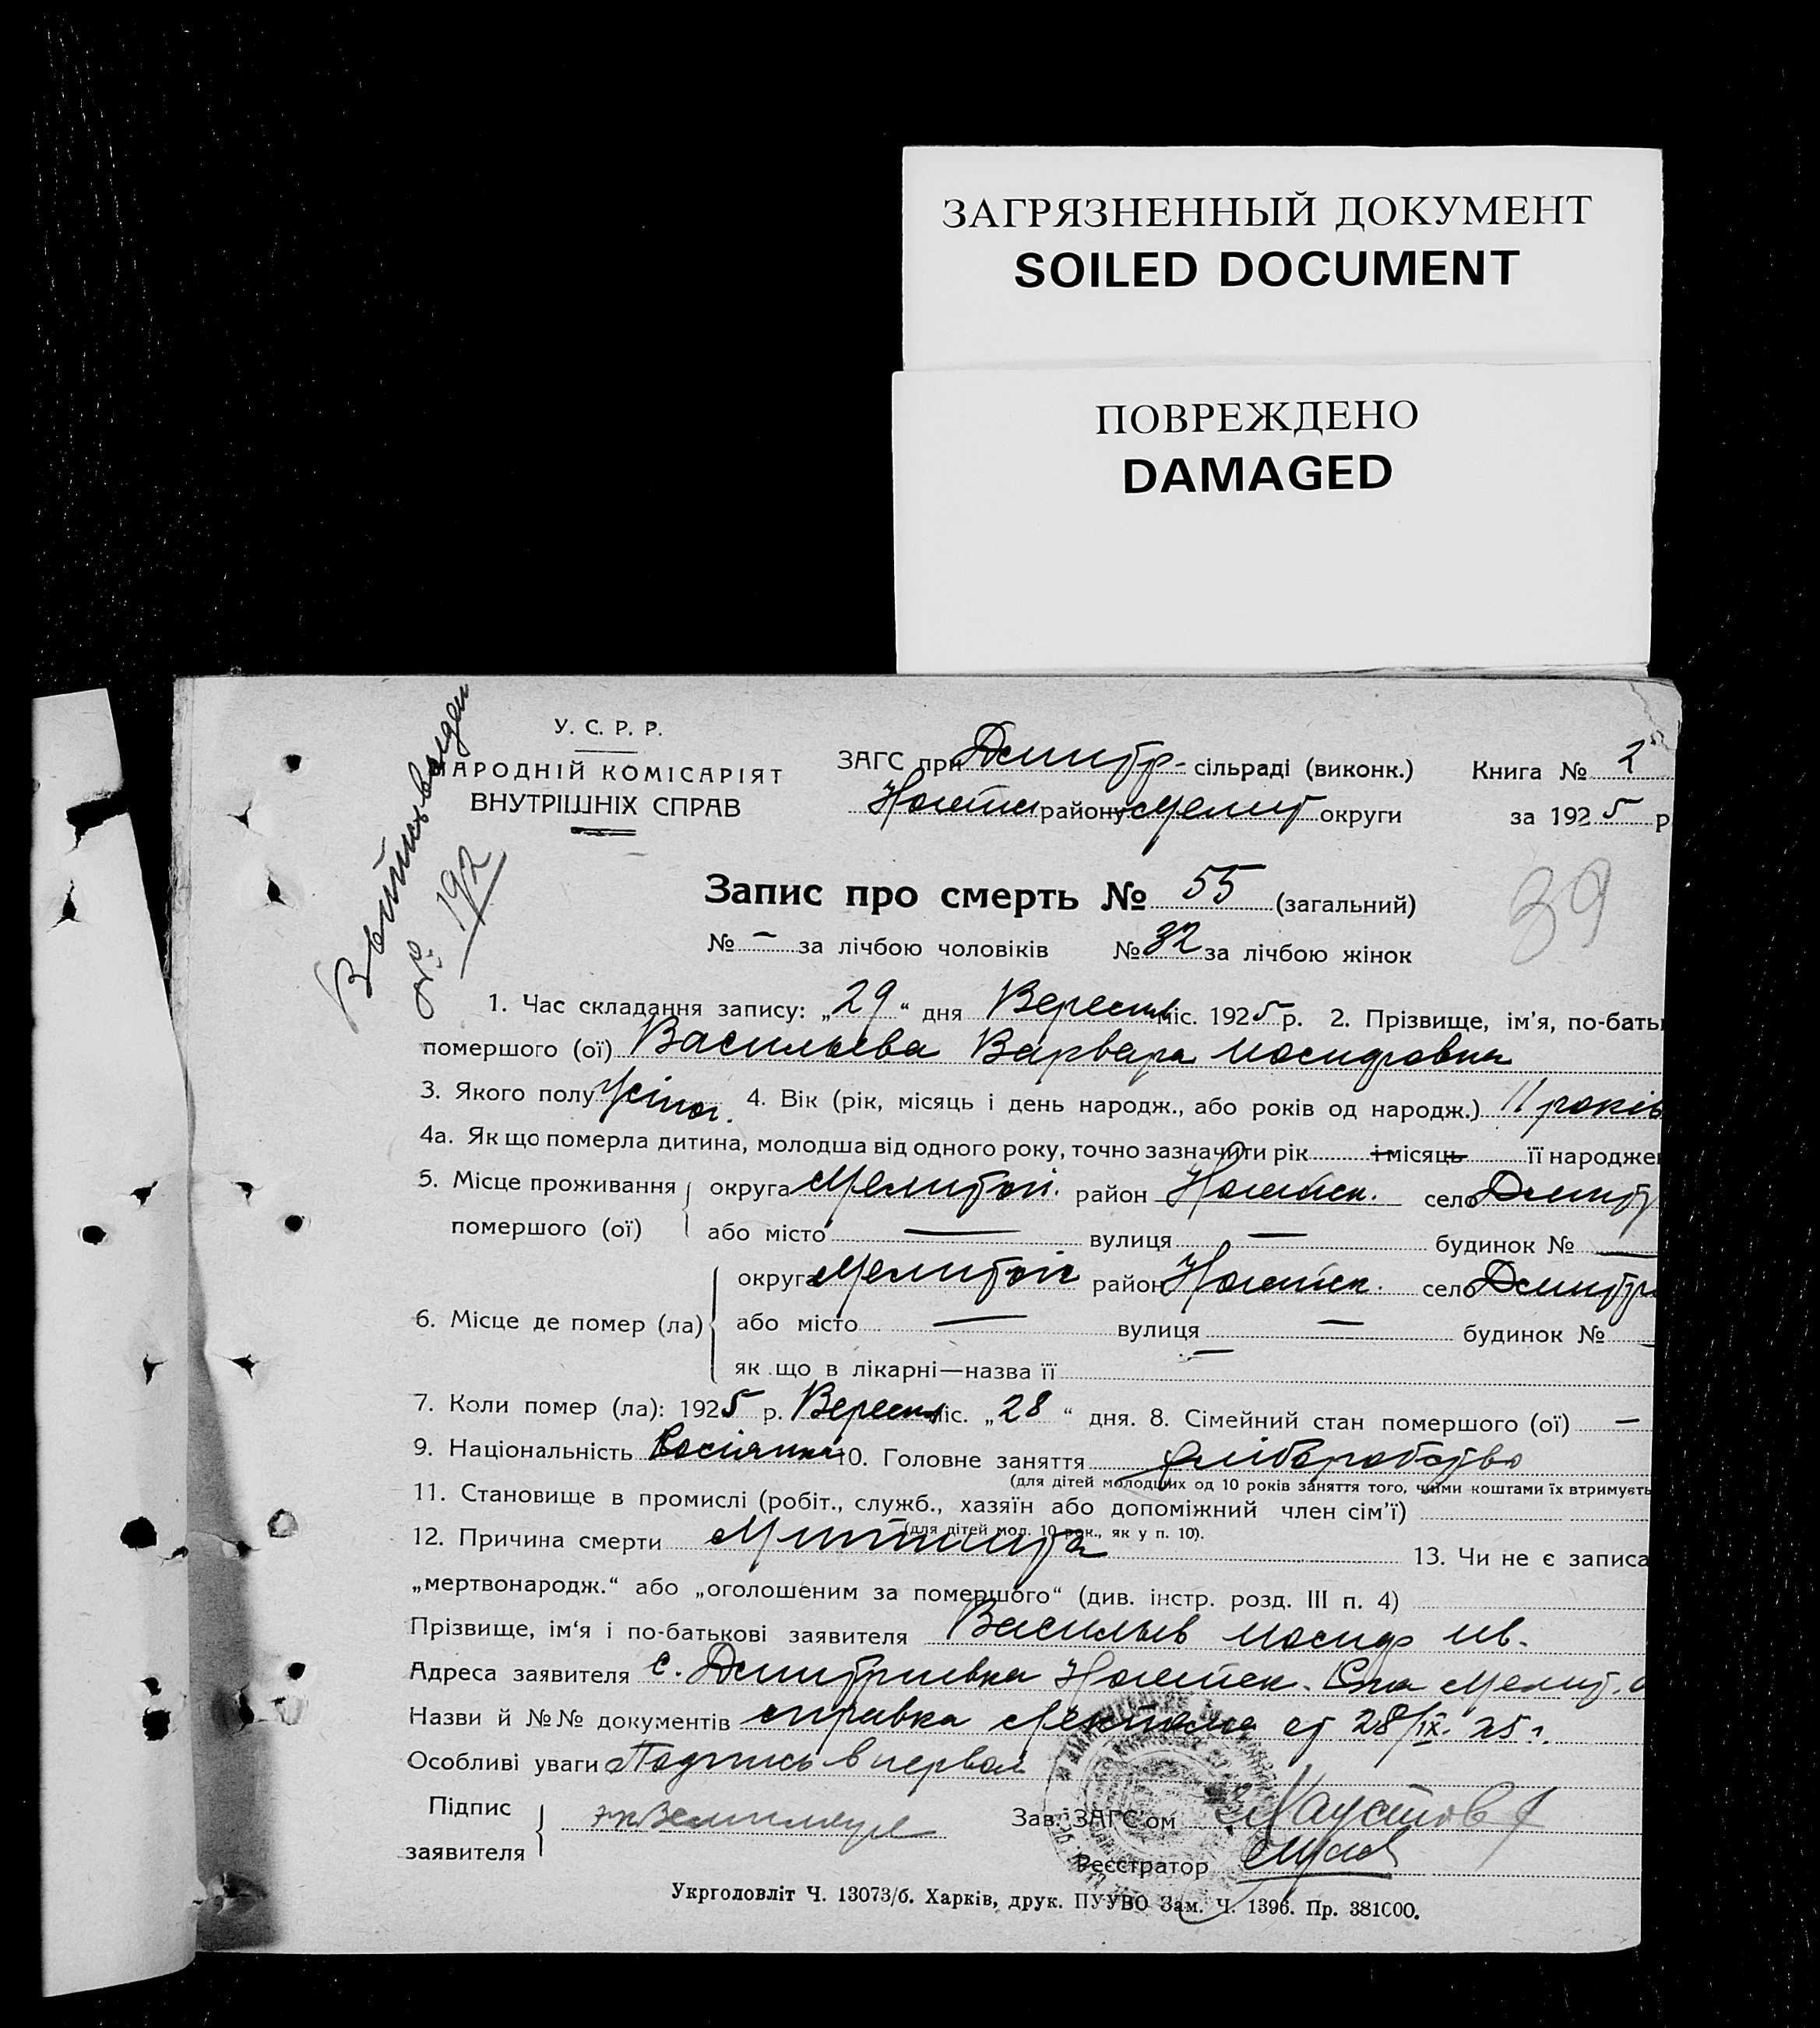 ЗАГРЯЗНЕННЫЙ ДОКУМЕНТ
SOILED DOCUMENT
ПОВРЕЖДЕНО
DAMAGED
№ 192
У. С. Р. Р.
НАРОДНІЙ КОМІСАРІЯТ
ВНУТРІШНІХ СПРАВ
ЗАГС при Дмитр- сільраді (виконк.) Книга № 2
району Мелит округи за 1925 р
39
Запис про смерть № 55 (загальний)
№ — за лічбою чоловіків № 32 за лічбою жінок
1. Час складання запису: „29“ дня Вересня міс. 1925 р. 2. Прізвище, ім'я, по-бать
помершого (ої) Васильева Варвара Иосифовна
3. Якого полу Жіноч. 4. Вік (рік, місяць і день народж., або років од народж.) 11 років
4а. Як що померла дитина, молодша від одного року, точно зазначити рік і місяць її народжен
5. Місце проживання помершого (ої) округа Мелитоп. район Ногайск. село Дмитр
або місто — вулиця — будинок № —
6. Місце де помер (ла) округа Мелитоп район Ногайск. село Дмитр
або місто — вулиця — будинок №
як що в лікарні—назва її —
7. Коли помер (ла): 1925 р. Вересня міс. „28“ дня. 8. Сімейний стан помершого (ої) —
9. Національність Росіянка 10. Головне заняття хліборобство
(для дітей молодших од 10 років заняття того, чиїми коштами їх втримуєть
11. Становище в промислі (робіт., служб., хазяїн або допоміжний член сім'ї)
(для дітей мол. 10 рок., як у п. 10).
12. Причина смерти 13. Чи не є записа
„мертвонародж.“ або „оголошеним за помершого“ (див. інстр. розд. III п. 4)
Прізвище, ім'я і по-батькові заявителя Васильев Иосиф Ив.
Адреса заявителя с. Дмитриевка Ногайск. Мелит.
Назви й №№ документів справка от 28/IX. 25 г.
Особливі уваги Подпись в первом
Підпис заявителя
Зав. ЗАГС'ом
Реєстратор
Укрголовліт Ч. 13073/б. Харків, друк. ПУУВО Зам. Ч. 1396. Пр. 381000.